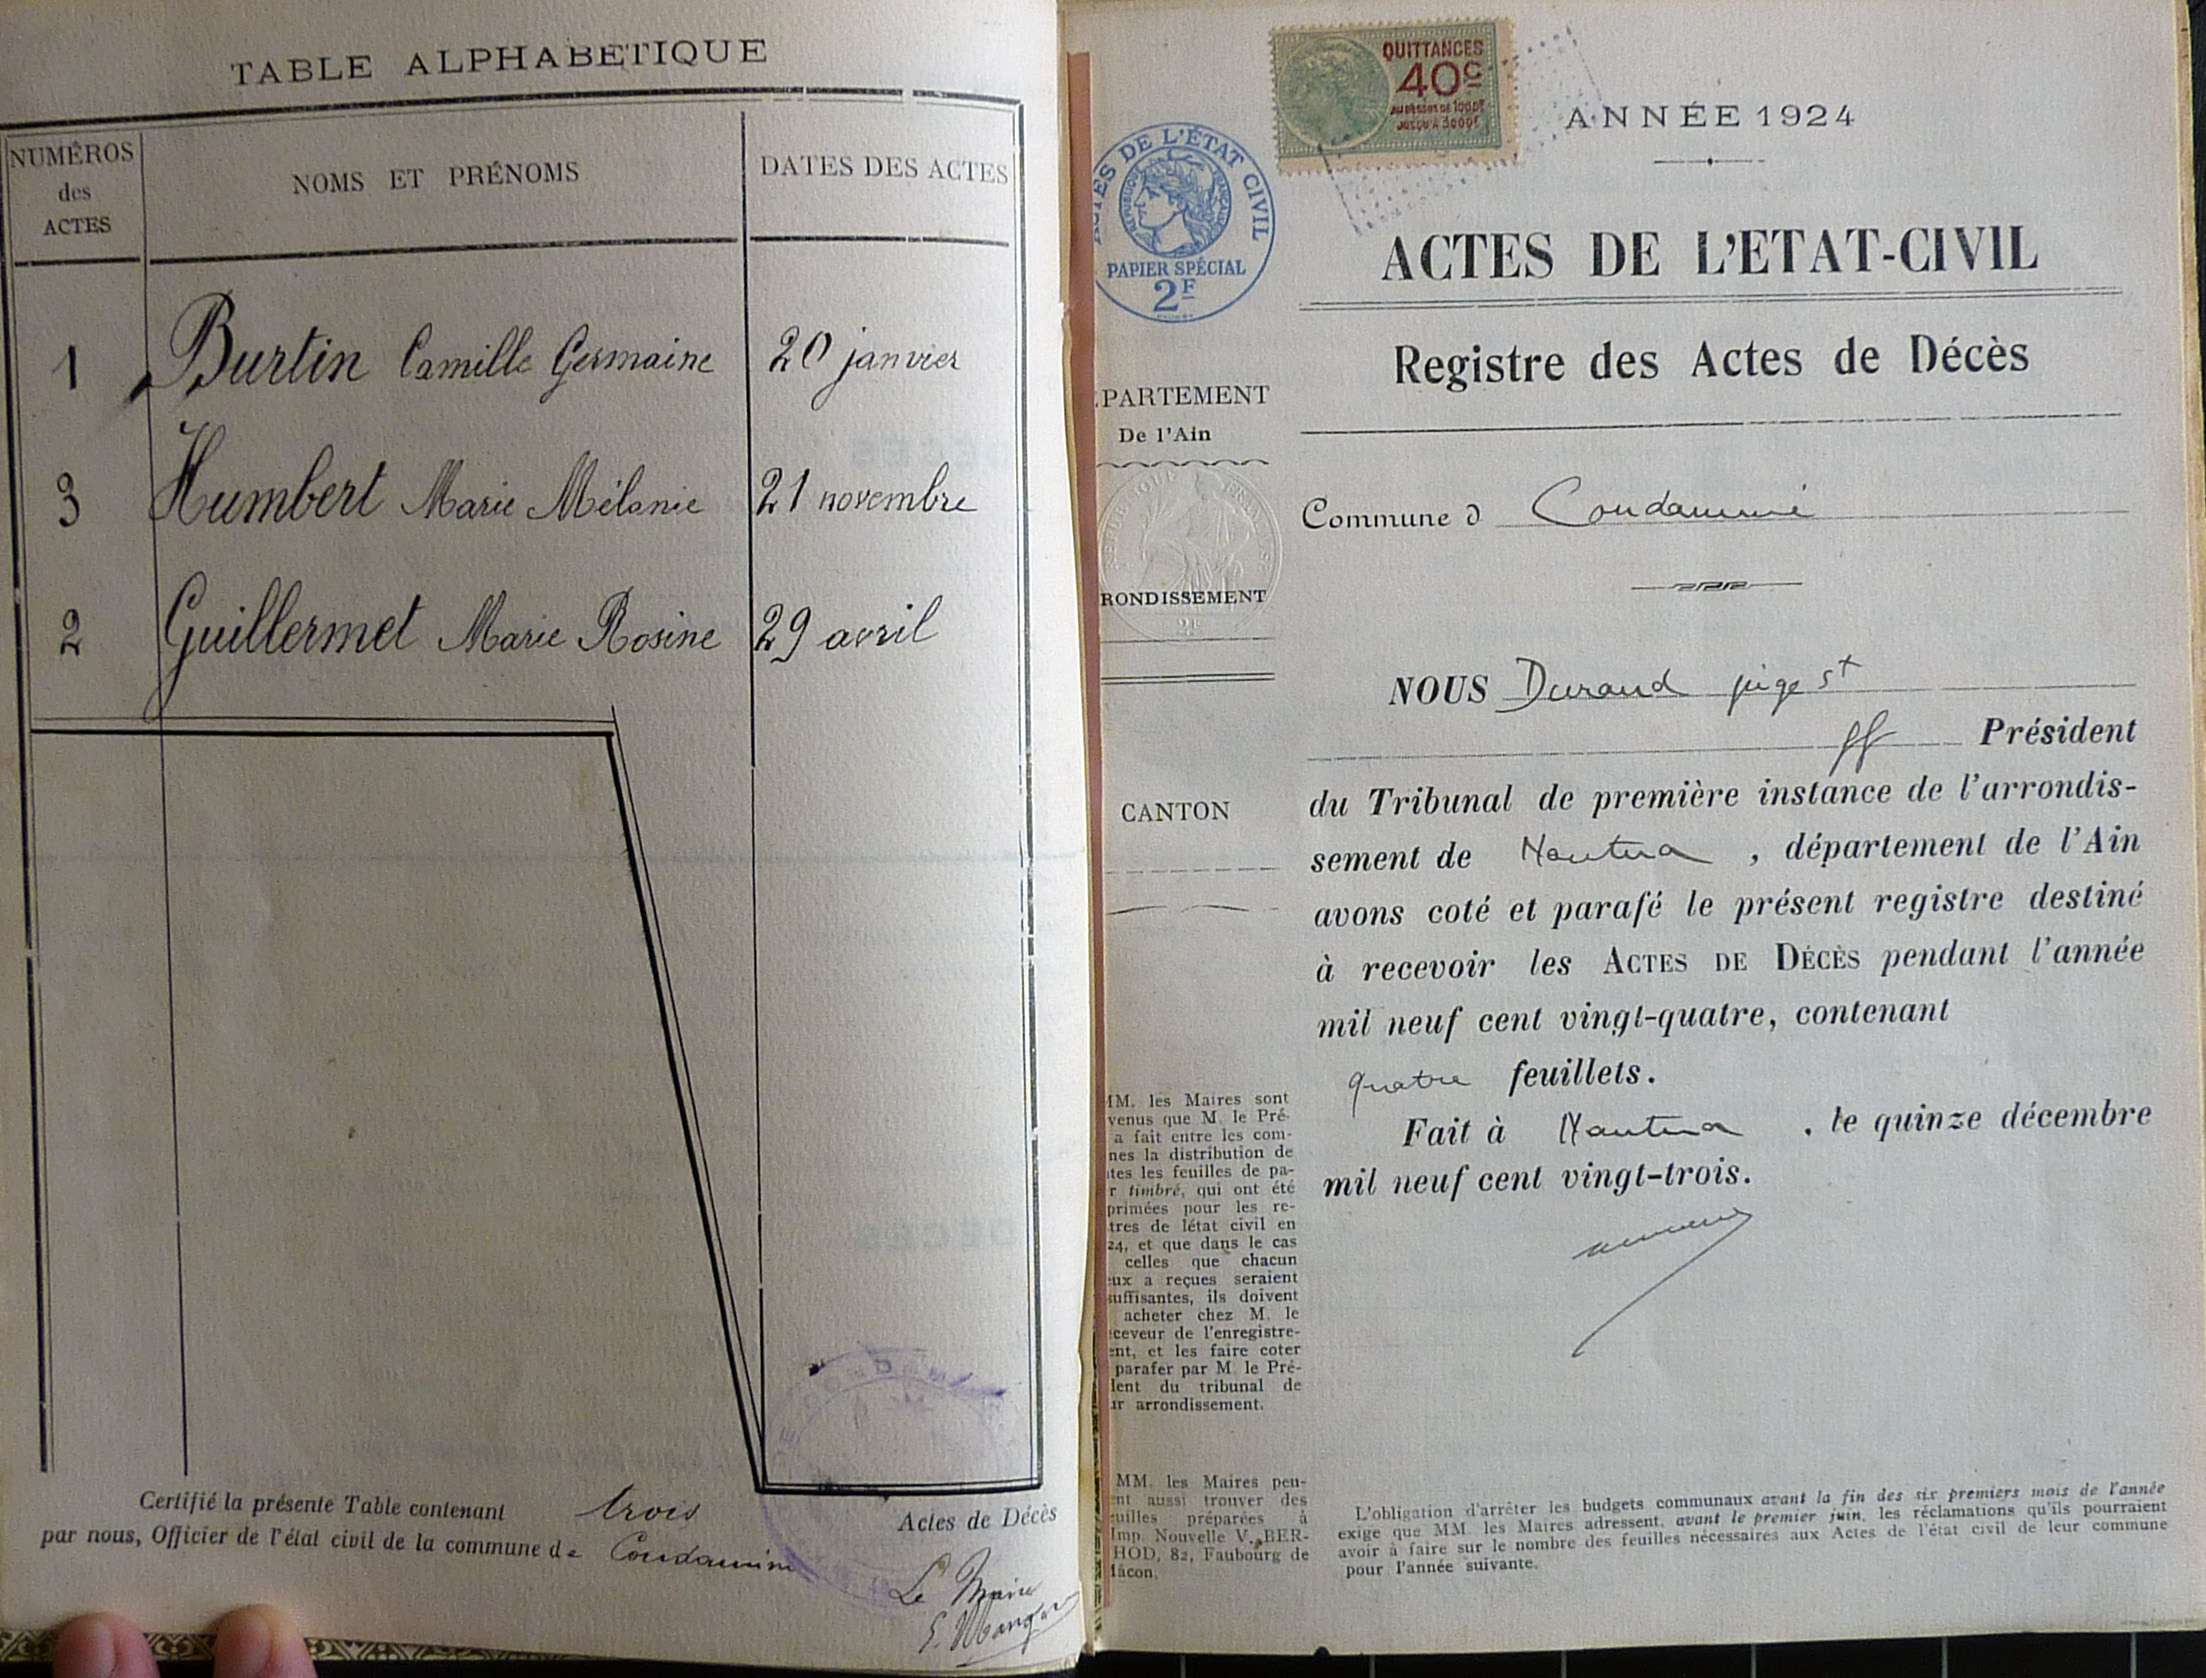 TABLE ALPHABETIQUE
NUMÉROS des ACTES
NOMS ET PRÉNOMS
DATES DES ACTES
1 Burtin Camille Germaine 20 janvier
3 Humbert Marie Mélanie 21 novembre
2 Guillermet Marie Rosine 29 avril
Certifié la présente Table contenant trois Actes de Décès
par nous, Officier de l'état civil de la commune de Condamine
Le Maire
QUITTANCES
40c
AU DESSUS DE 1000F
JUSQU'A 3000F
ACTES DE L'ÉTAT CIVIL
RÉPUBLIQUE FRANÇAISE
PAPIER SPÉCIAL
2F
ANNÉE 1924
ACTES DE L'ETAT-CIVIL
Registre des Actes de Décès
PARTEMENT
De l'Ain
Commune d Condamine
RONDISSEMENT
2F
CANTON
NOUS Durand juge st
ff Président
du Tribunal de première instance de l'arrondis-
sement de Nantua, département de l'Ain
avons coté et parafé le présent registre destiné
à recevoir les ACTES DE DÉCÈS pendant l'année
mil neuf cent vingt-quatre, contenant
quatre feuillets.
Fait à Nantua, le quinze décembre
mil neuf cent vingt-trois.
MM. les Maires sont
venus que M. le Pré-
a fait entre les com-
nes la distribution de
tes les feuilles de pa-
r timbré, qui ont été
primées pour les re-
tres de létat civil en
24, et que dans le cas
celles que chacun
eux a reçues seraient
suffisantes, ils doivent
acheter chez M. le
ceveur de l'enregistre-
ent, et les faire coter
parafer par M. le Pré-
dent du tribunal de
ur arrondissement.
MM. les Maires peu-
ent aussi trouver des
euilles préparées à
Imp. Nouvelle V. BER-
HOD, 82, Faubourg de
Mâcon.
L'obligation d'arrêter les budgets communaux avant la fin des six premiers mois de l'année
exige que MM. les Maires adressent, avant le premier juin, les réclamations qu'ils pourraient
avoir à faire sur le nombre des feuilles nécessaires aux Actes de l'état civil de leur commune
pour l'année suivante.